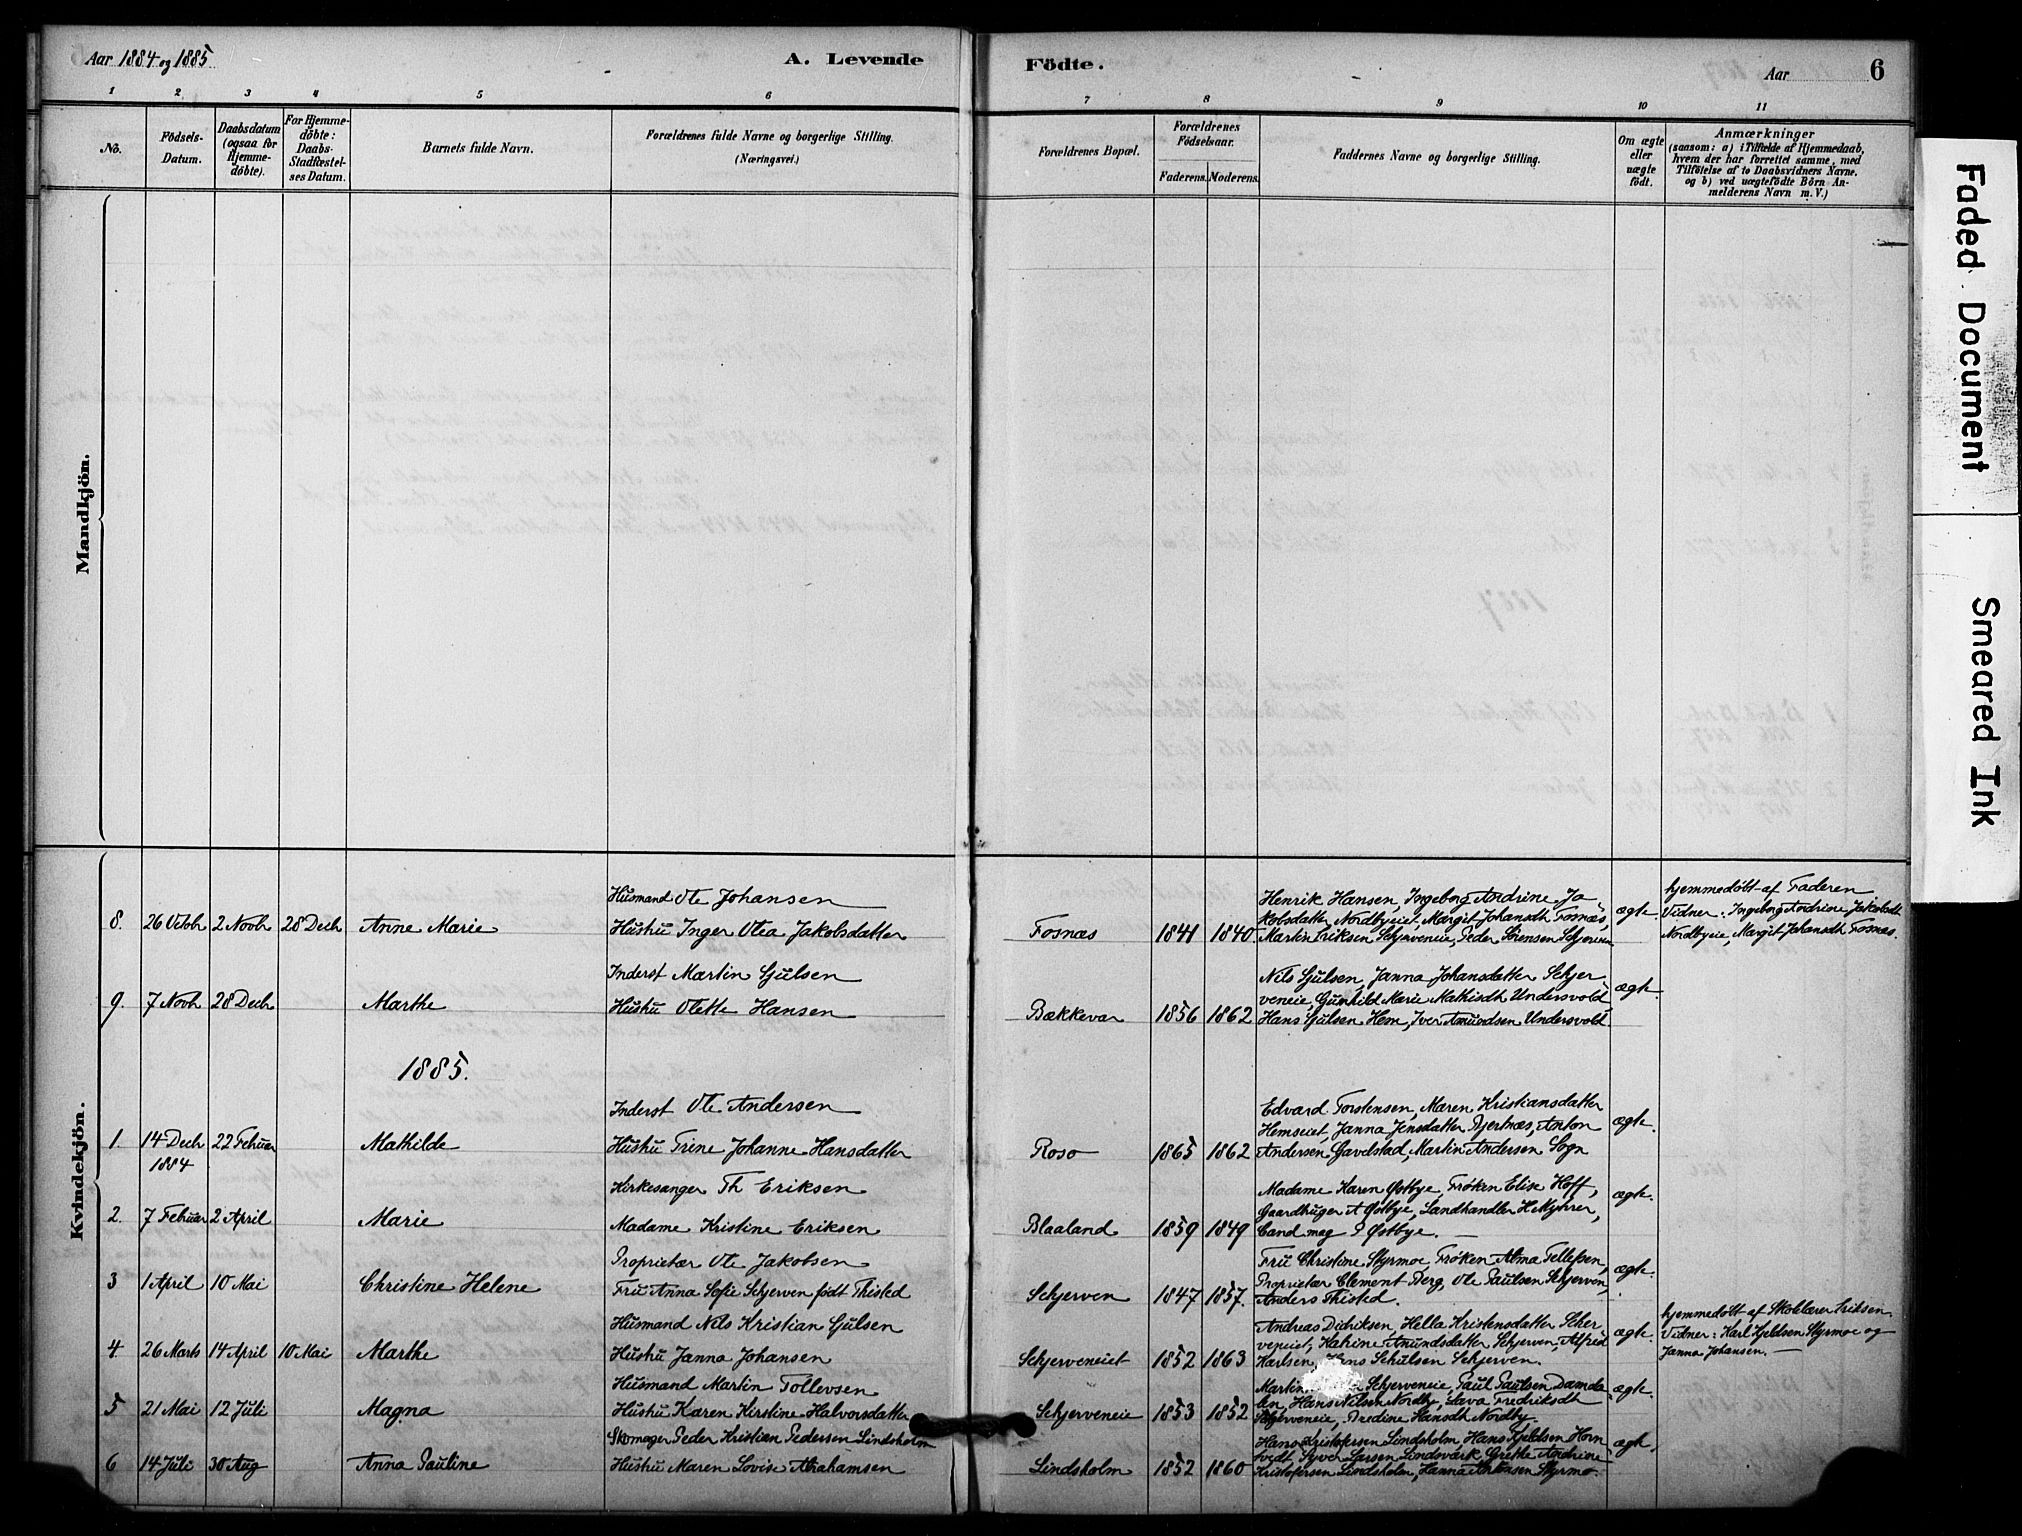 Aar 1884 og 1885
A. Levende Födte.
Aar
6
1 2 3 4 5 6 7 8 9 10 11
No.
Födsels-Datum.
Daabsdatum (ogsaa for Hjemme-döbte).
For Hjemme-döbte: Daabs-Stadfæstel-ses Datum.
Barnets fulde Navn.
Forældrenes fulde Navne og borgerlige Stilling. (Næringsvei.)
Forældrenes Bopæl.
Forældrenes Födselsaar.
Faderens. Moderens.
Faddernes Navne og borgerlige Stilling.
Om ægte eller uægte födt.
Anmærkninger
(saasom: a) i Tilfælde af Hjemmedaab,
hvem der har forrettet samme, med
Tilföielse af to Daabsvidners Navne.
og b) ved uægtefödte Börn An-
melderens Navn m.V.)
Mandkjön.
Kvindekjön.
Husmand Ole Johansen
8. 26 Octbr 2 Novbr 28 Decbr Anne Marie Hustru Inger Olea Jakobsdatter Fosnæs 1841 1840
Henrik Hansen, Ingeborg Andrine Ja-
kobsdatter, Nordbyeiet, Margit Johansdt Fosnæs,
Martin Eriksen Schjerveneie, Peder Sörensen Schjerven
ægte
hjemmedøbt af Faderen
Vidner: Ingeborg Andrine Jakobsdt
Nordbyeie, Margit Johansdt Fosnæs.
Inderst Martin Gjulsen
9. 7 Novbr 28 Decbr Marthe Hustru Olette Hansen Bækkevar 1856 1862
Nils Gjulsen, Janna Johansdatter Schjer
veneie, Gunhild Marie Mathisdt Undersvold
Hans Gjulsen Hem, Iver Amundsen Undersvold.
ægte.
1885.
Inderst Ole Andersen
1. 14 Decbr 1884 22 Februar Mathilde Hustru Trine Johanne Hansdatter Roso 1865 1862
Edvard Torstensen, Maren Kristiansdatter
Hemseiet, Janna Jensdatter Bjertnæs, Anton
Andersen Gavelstad, Martin Andersen Sogn
ægte.
Kirkesanger Th Eriksen
2. 7 Februar 2 April Marie Madame Kristine Eriksen Blaaland 1859 1849
Madame Karen Østbye, Frøken Elise Hoff,
Gaardbruger A Østbye, Landhandler H. Myhrer,
Cand mag P Østbye.
ægte.
Proprietær Ole Jakobsen
3 1 April 10 Mai Christine Helene Fru Anna Sofie Schjerven født Thisted Schjerven 1847 1857.
Fru Christine Styrmoe Frøken Alma Tellefsen,
Proprietær Clement Berg, Ole Paulsen Schjerven,
Anders Thisted.
ægte.
Husmand Nils Kristian Gjulsen
4. 26 Marts 14 April 10 Mai Marthe Hustru Janna Johansen Schjerveneiet 1852 1863
Andreas Didriksen, Hella Kristensdatter Scher
veneiet, Katrine Amundsdatter Schjerven, Alfred
Karlsen, Schulsen Schjerven.
ægte.
hjemmedøbt af Skolelærer Eriksen
Vidner: Karl Kjeldsen Styrmoe og
Janna Johansen.
Husmand Martin Tollevsen
5 21 Mai 12 Juli Magna Hustru Karen Kirstine Halvorsdatter Schjerveneie 1853 1852
Martin Schjerveneie, Paul Paulsen Damda-
len, Hans Nilsen Nordby, Lava Fredriksdt
Schjerveneie, Bredine Hansdt Nordby.
ægte.
Skomager Peder Kristian Pedersen Lindsholm
6 14 Juli 30 Aug Anna Pauline Hustru Maren Lovise Abrahamsen Lindsholm 1852 1860
Hans Kristofersen Lindsholm, Hans Kjeldsen Horn
tvedt, Syver Larsen Lindsværk, Grethe Andrine
Kristofersen Lindsholm, Hanna Antonsen Styrmo
ægte.
Faded Document
Smeared Ink